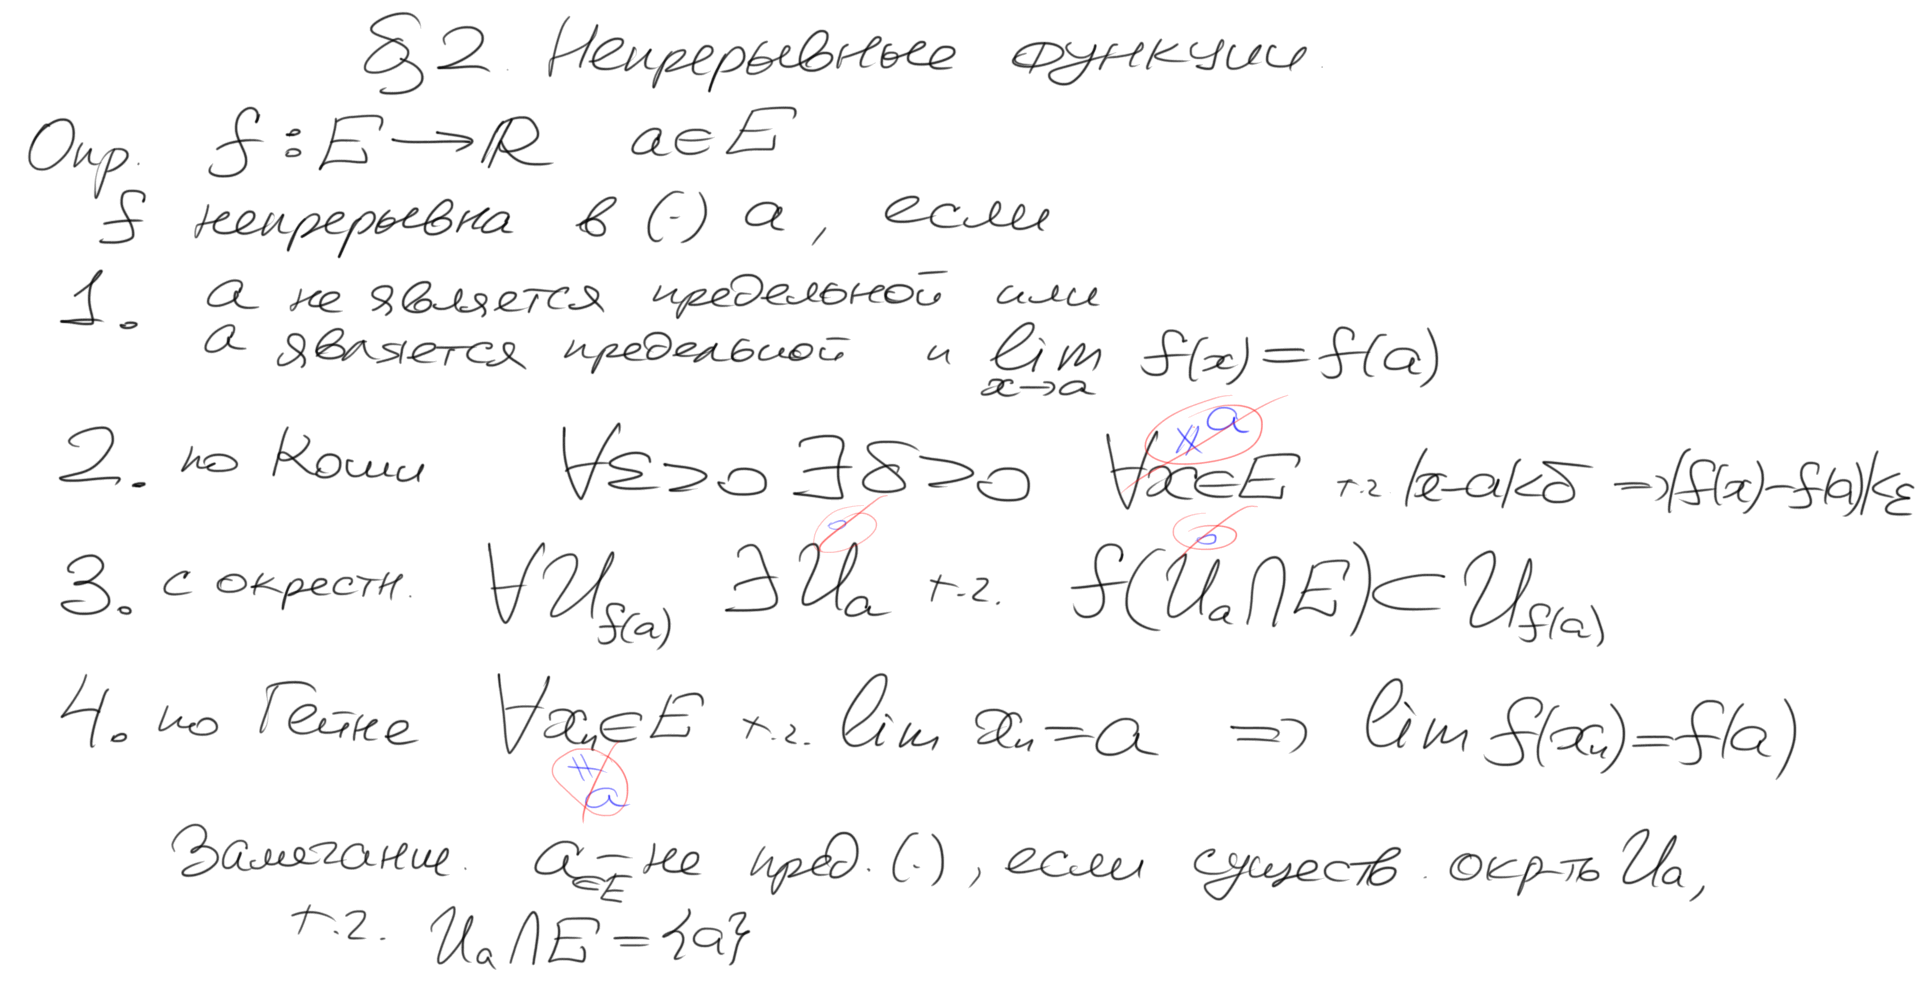 §2. Непрерывные функции.
Опр. f : E → ℝ a ∈ E
f непрерывна в (·) a, если
1. a не является предельной или
a является предельной и lim f(x) = f(a)
x→a
≠ a
2. по Коши ∀ε>0 ∃δ>0 ∀x∈E т.г. |x-a|<δ ⇒ |f(x)-f(a)|<ε
о о
3. с окрестн. ∀U_f(a) ∃U_a т.г. f(U_a ∩ E) ⊂ U_f(a)
4. по Гейне ∀x_n ∈ E т.г. lim x_n = a ⇒ lim f(x_n) = f(a)
≠
a
Замечание. a – не пред. (·), если существ. окр-ть U_a,
∈E
т.г. U_a ∩ E = {a}